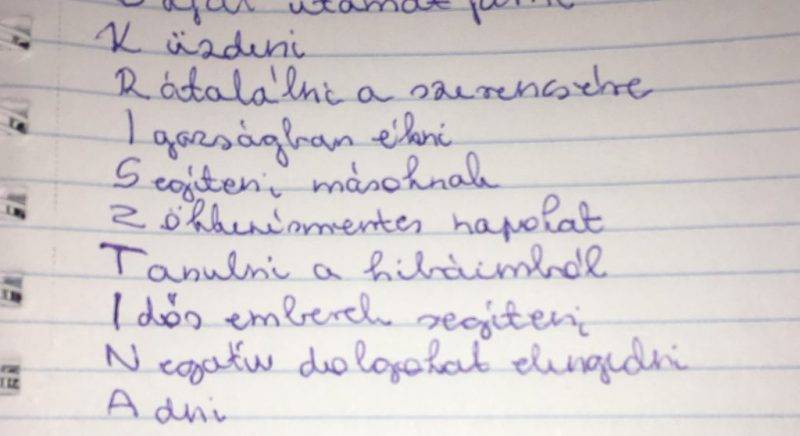 Saját utamat járni
K üzdeni
R átalálni a szerencsére
I gazságban élni
S egíteni másoknak
Z ökkenésmentes napokat
T anulni a hibáimból
I dős emberek segíteni
N egatív dolgokat elengedni
A dni